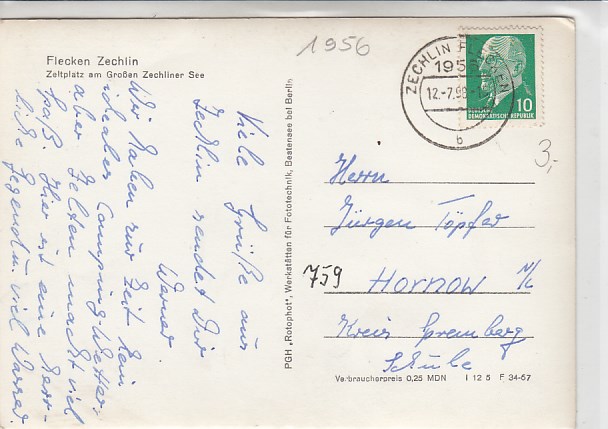 Flecken Zechlin
Zeltplatz am Großen Zechliner See
Viele Grüße aus
Zechlin sendet Dir
Werner
Wir haben zur Zeit kein
ideales Camping-Wetter.
aber Zelten macht viel
Spaß. Hier ist eine herr-
liche Gegend u. viel Wasser.
PGH „Rotophot", Werkstätten für Fototechnik, Bestensee bei Berlin
1956
ZECHLIN FLECKEN
195
12.-7.
b
10
DEMOKRATISCHE REPUBLIK
3,-
Herrn
Jürgen Töpfer
759 Hornow N/L
Kreis Spremberg
Schule
Verbraucherpreis 0,25 MDN I 12 5 F 34-67